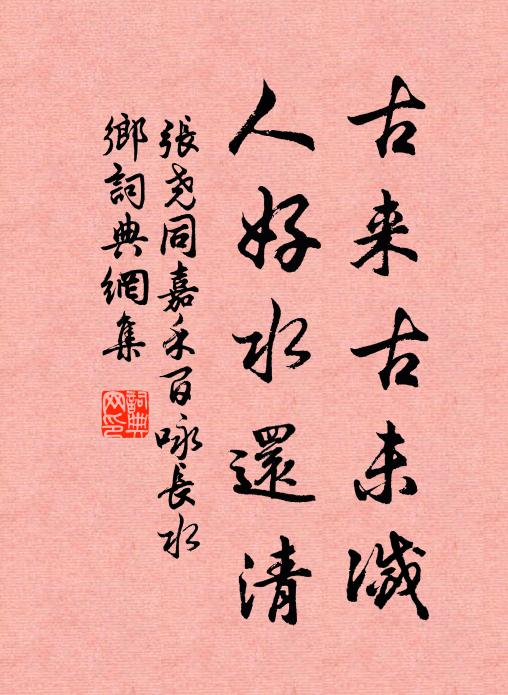 古来古未滅
人好水還清
張尧同嘉禾百咏長水
鄉詞典網集
詞典
网印